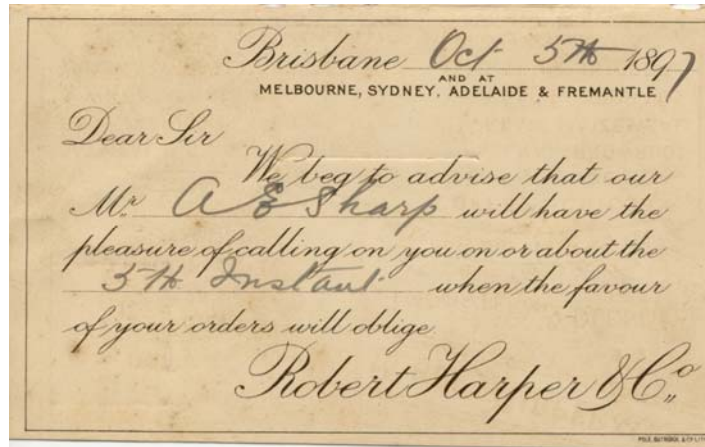 Brisbane Oct 5th 1897
AND AT
MELBOURNE, SYDNEY, ADELAIDE & FREMANTLE
Dear Sir
We beg to advise that our
Mr. A E Sharp will have the
pleasure of calling on you on or about the
5th Instant when the favour
of your orders will oblige
Robert Harper & Co.